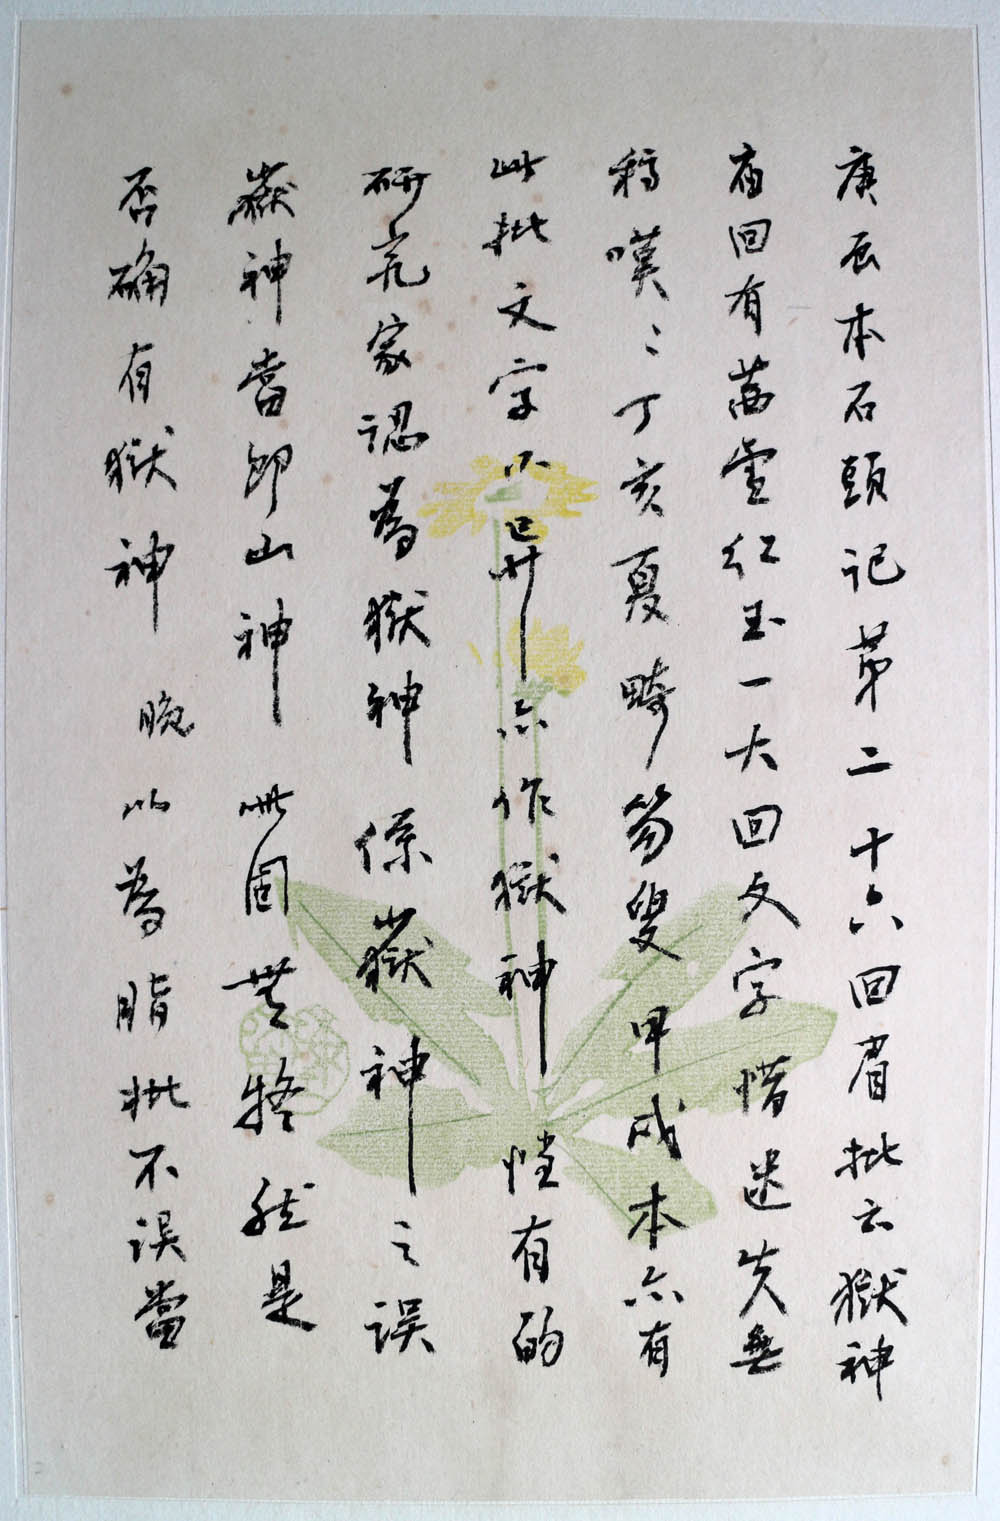 庚辰本石頭記第二十六回眉批云獄神
庙回有茜雪红玉一大回文字惜迷失無
稿嘆〻丁亥夏畸笏叟甲戌本亦有
此批文字小異亦作獄神惟有的
研究家認為獄神係嶽神之誤
嶽神當即山神此固無據然是
否确有獄神 晚以為脂批不误當